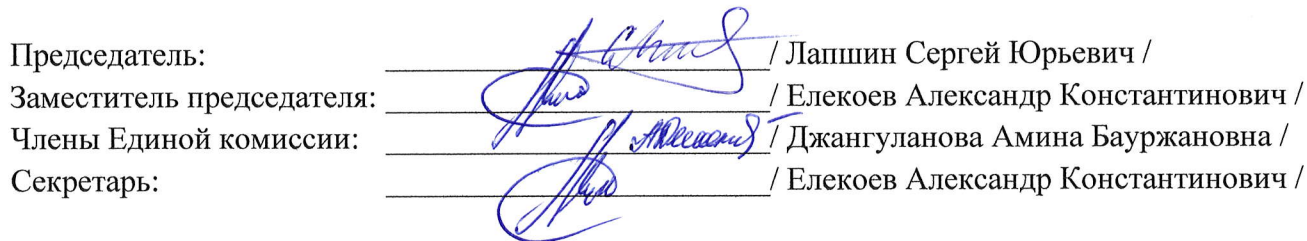 Председатель: / Лапшин Сергей Юрьевич /
Заместитель председателя: / Елекоев Александр Константинович /
Члены Единой комиссии: / Джангуланова Амина Бауржановна /
Секретарь: / Елекоев Александр Константинович /